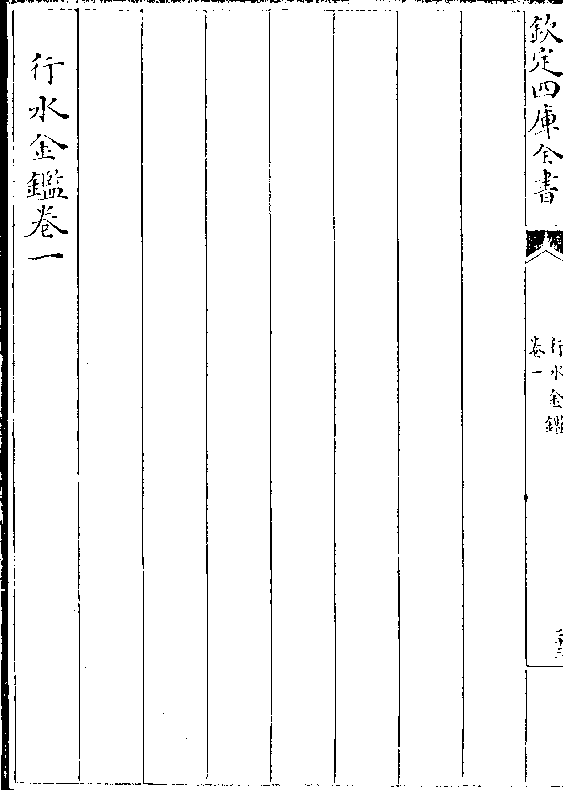 欽定四庫全書
行水金鑑
卷一
行水金鑑卷一